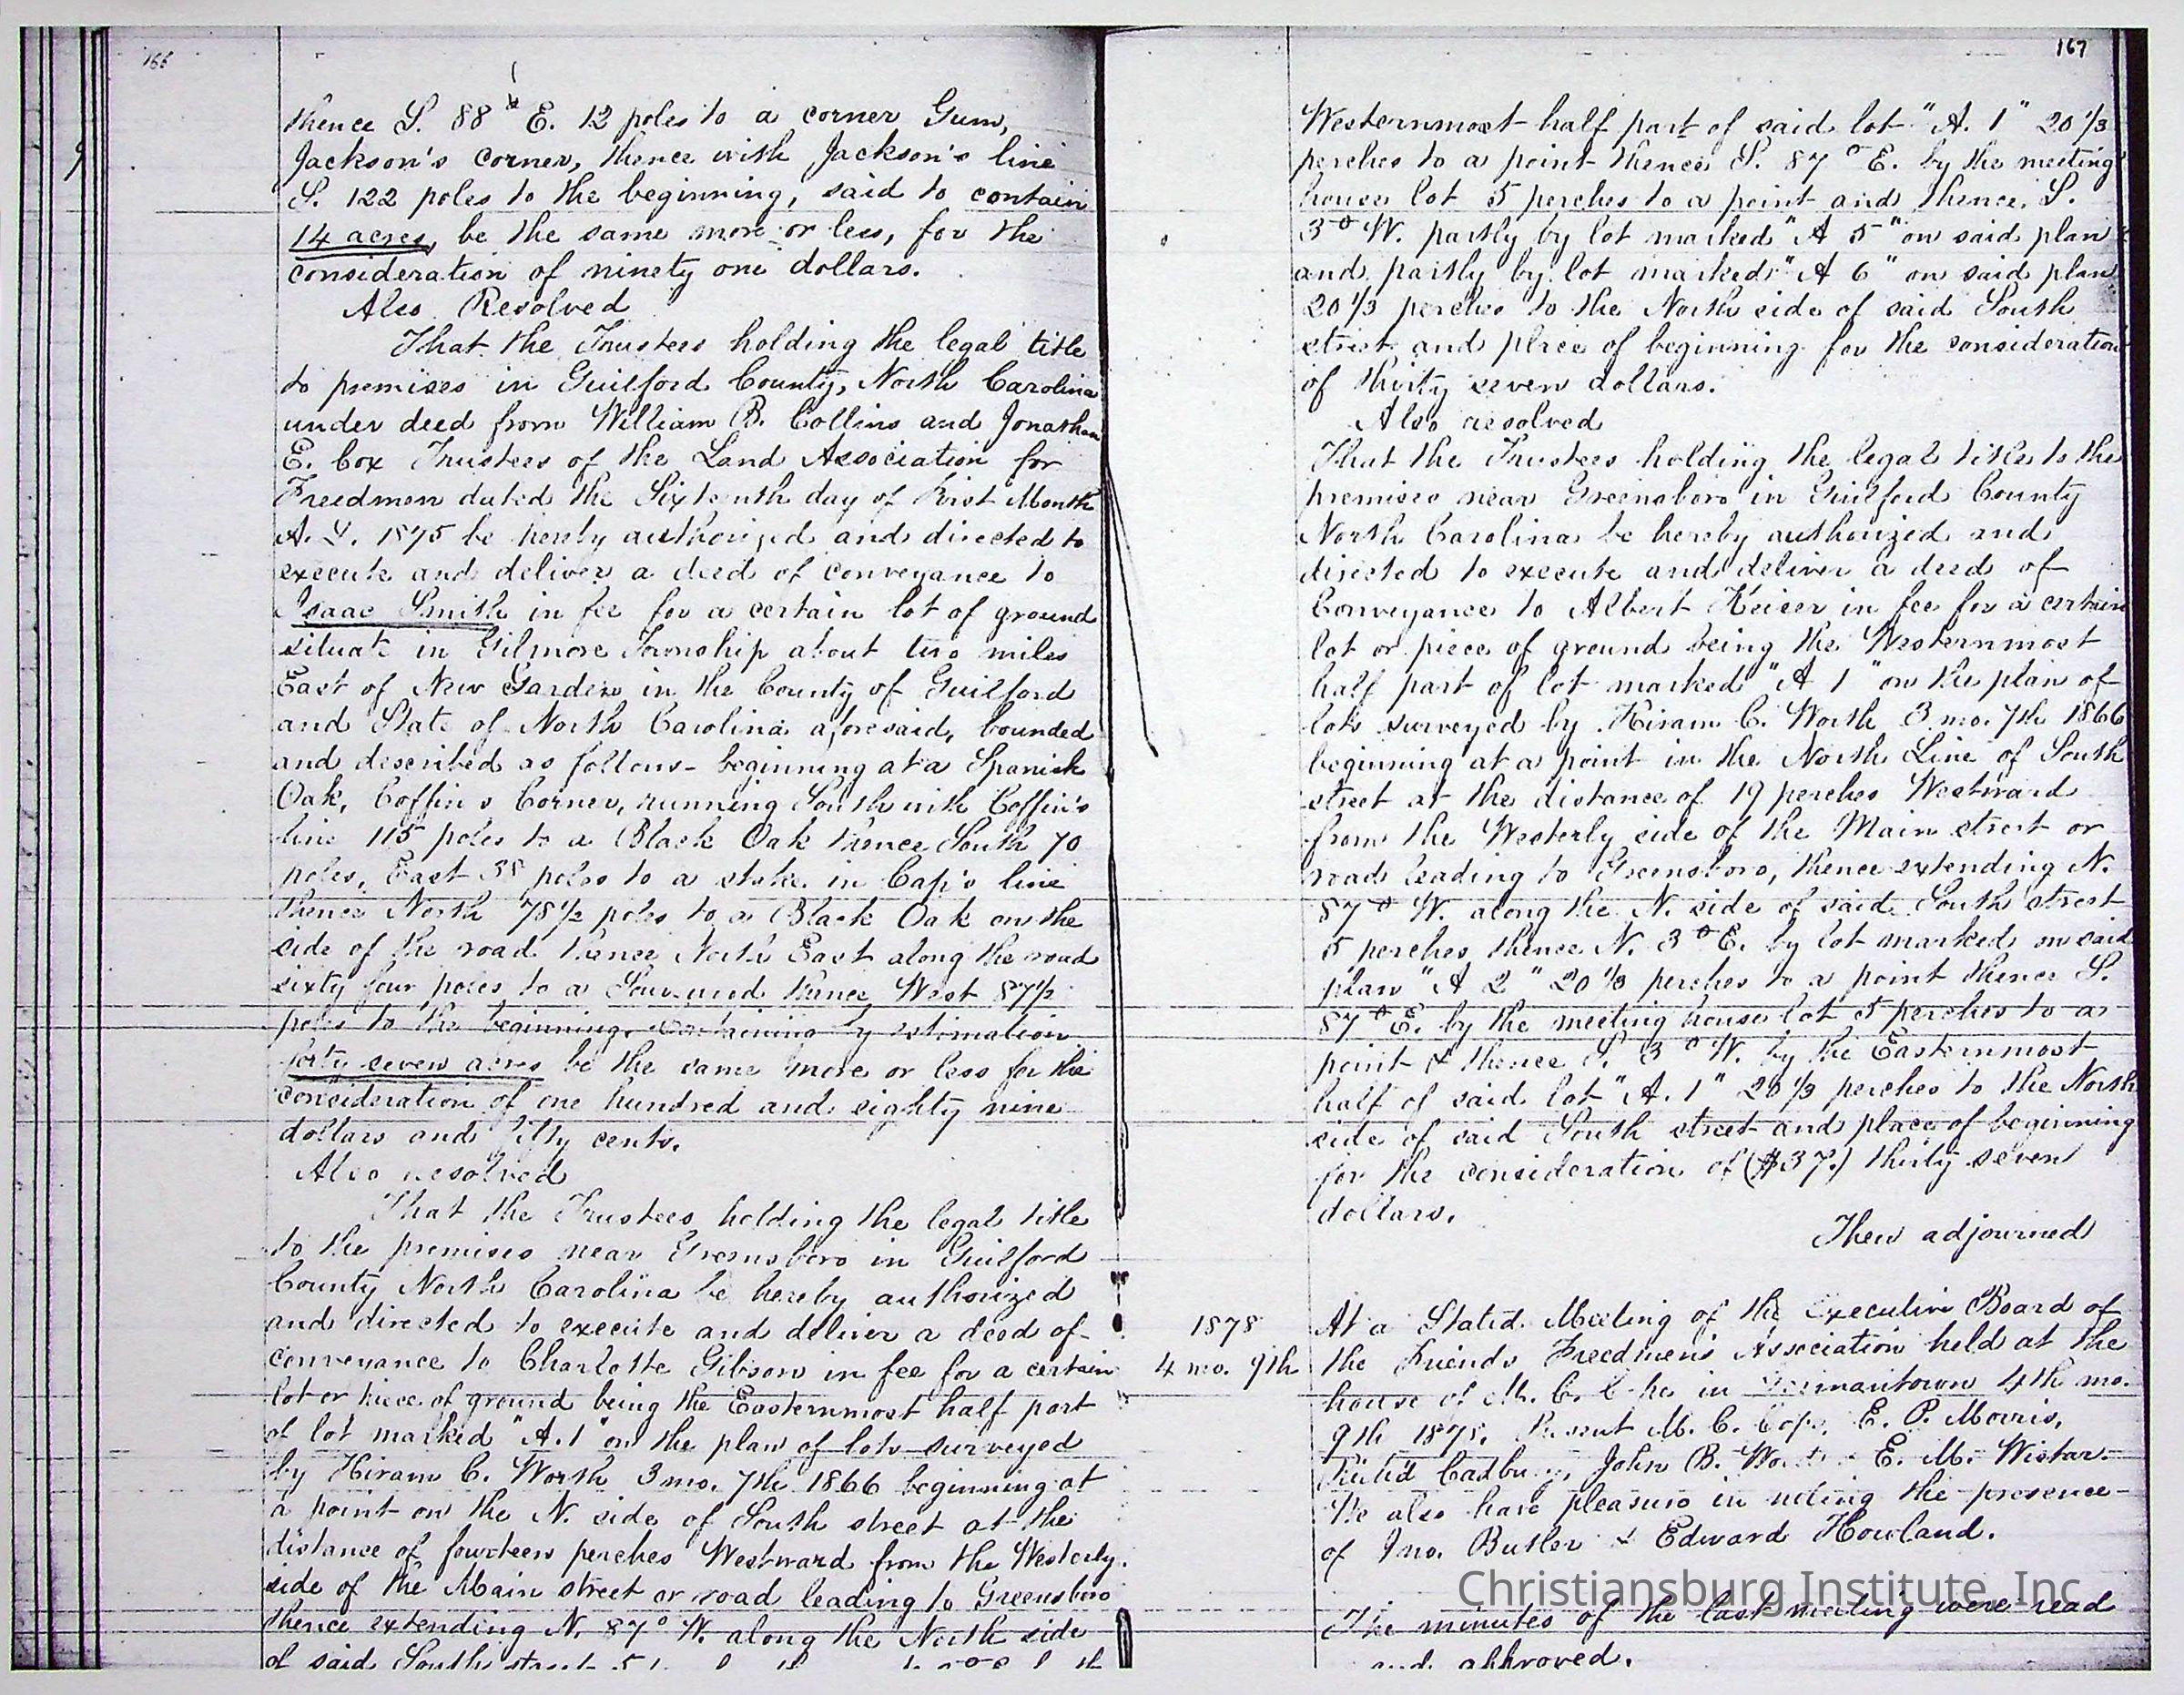 166
thence S. 88° E. 12 poles to a corner Gum,
Jackson's corner, thence with Jackson's line
S. 122 poles to the beginning, said to contain
14 acres, be the same more or less, for the
consideration of ninety one dollars.
Also Resolved
That the Trustees holding the legal title
to premises in Guilford County, North Carolina
under deed from William B. Collins and Jonathan
E. Cox Trustees of the Land Association for
Freedmen dated the Sixteenth day of First Month
A.D. 1875 be hereby authorized and directed to
execute and deliver a deed of conveyance to
Isaac Smith in fee for a certain lot of ground
situate in Gilmore Township about two miles
East of New Garden in the County of Guilford
and State of North Carolina aforesaid, bounded
and described as follows - beginning at a Spanish
Oak, Coffin's Corner, running South with Coffin's
line 115 poles to a Black Oak thence South 70
poles, East 38 poles to a stake in Cap's line
thence North 78 1/2 poles to a Black Oak on the
side of the road thence North East along the road
sixty four poles to a Sourwood thence West 87 1/2
poles to the beginning, containing by estimation
forty seven acres be the same more or less for the
consideration of one hundred and eighty nine
dollars and fifty cents.
Also resolved
That the Trustees holding the legal title
to the premises near Greensboro in Guilford
County North Carolina be hereby authorized
and directed to execute and deliver a deed of
conveyance to Charlotte Gibson in fee for a certain
lot or piece of ground being the Easternmost half part
of lot marked "A. 1" on the plan of lots surveyed
by Hiram C. Worth 3 mo. 7th 1866 beginning at
a point on the N. side of South street at the
distance of fourteen perches Westward from the Westerly
side of the Main street or road leading to Greensboro
thence extending N. 87° W. along the North side
of said South street 5
167
Westernmost half part of said lot "A. 1" 20 1/3
perches to a point thence S. 87° E. by the meeting
house lot 5 perches to a point and thence S.
3° W. partly by lot marked "A 5" on said plan
and partly by lot marked "A 6" on said plan
20 1/3 perches to the North side of said South
street and place of beginning for the consideration
of thirty seven dollars.
Also resolved
That the Trustees holding the legal title to the
premises near Greensboro in Guilford County
North Carolina be hereby authorized and
directed to execute and deliver a deed of
Conveyance to Albert Keiser in fee for a certain
lot or piece of ground being the Westernmost
half part of lot marked "A 1" on the plan of
lots surveyed by Hiram C. Worth 3 mo. 7th 1866
beginning at a point in the North Line of South
street at the distance of 19 perches Westward
from the Westerly side of the Main street or
road leading to Greensboro, thence extending N.
87° W. along the N. side of said South street
5 perches thence N. 3° E. by lot marked on said
plan "A 2" 20 1/3 perches to a point thence S.
87° E. by the meeting house lot 5 perches to a
point & thence S. 3° W. by the Easternmost
half of said lot "A. 1" 20 1/3 perches to the North
side of said South street and place of beginning
for the consideration of ($37.) thirty seven
dollars.
Then adjourned
1878
4 mo. 9th
At a Stated Meeting of the Executive Board of
the Friends Freedmen's Association held at the
house of M. C. Cope in Germantown 4th mo.
9th 1878. Present M. C. Cope, E. P. Morris,
Richd Cadbury, John B. Wood E. M. Wistar.
We also have pleasure in noting the presence
of Jno. Butler & Edward Howland.
The minutes of the last meeting were read
and approved.
Christiansburg Institute, Inc